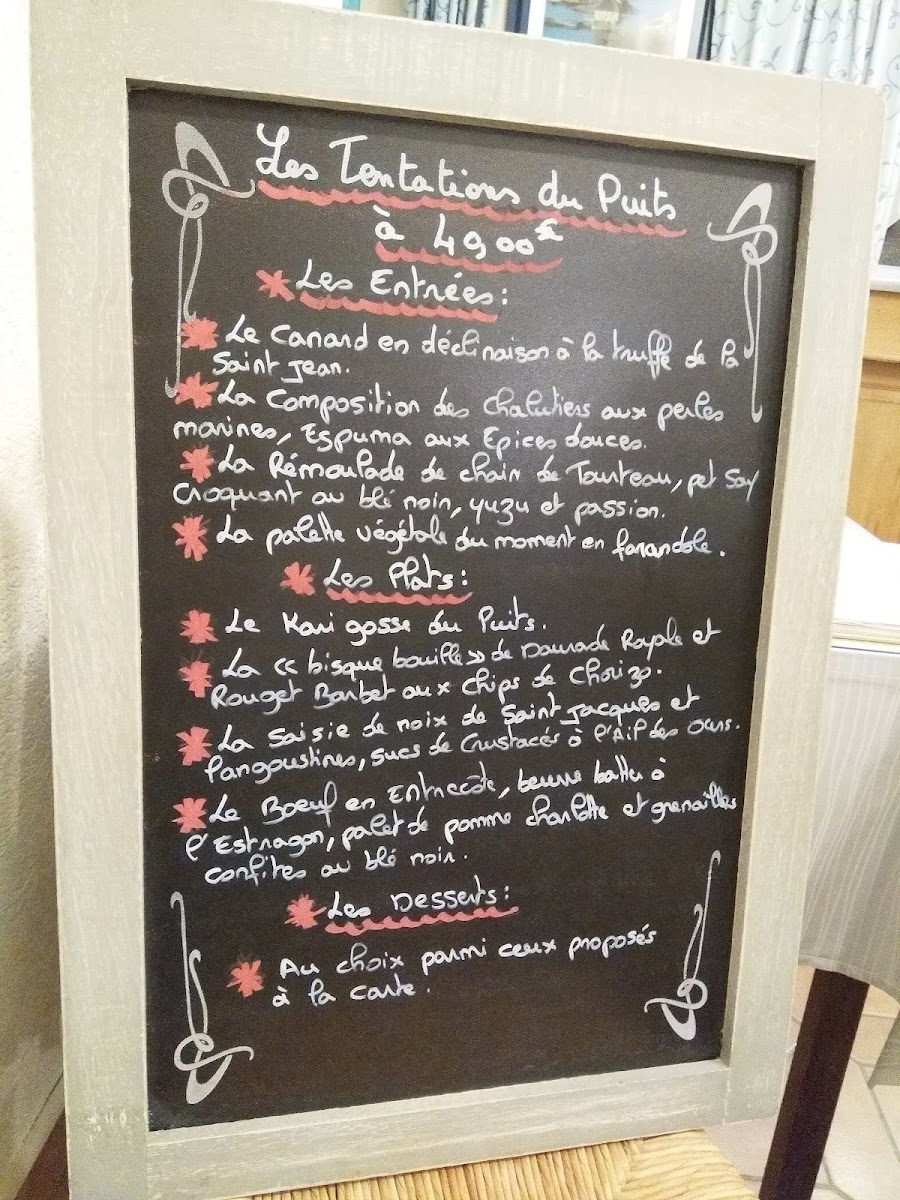 Les Tentations du Puits
à 49,00€
Les Entrées:
Le Canard en déclinaison à la truffe de la
Saint Jean.
La Composition des chalutiers aux perles
marines, Espuma aux Epices douces.
La Rémoulade de chair de Tourteau, pet say
Croquant au blé noir, yuzu et passion.
La palette végétale du moment en farandole.
Les Plats:
Le Kari gosse du Puits.
La « bisque bouille » de Daurade Royale et
Rouget Barbet aux chips de Chorizo.
La Saisie de noix de Saint Jacques et
langoustines, sucs de Crustacés à l'Ail des Ours.
Le Boeuf en Entrecôte, beurre battu à
l'Estragon, palet de pomme charlotte et grenailles
confites au blé noir.
Les Desserts:
Au choix parmi ceux proposés
à la carte.